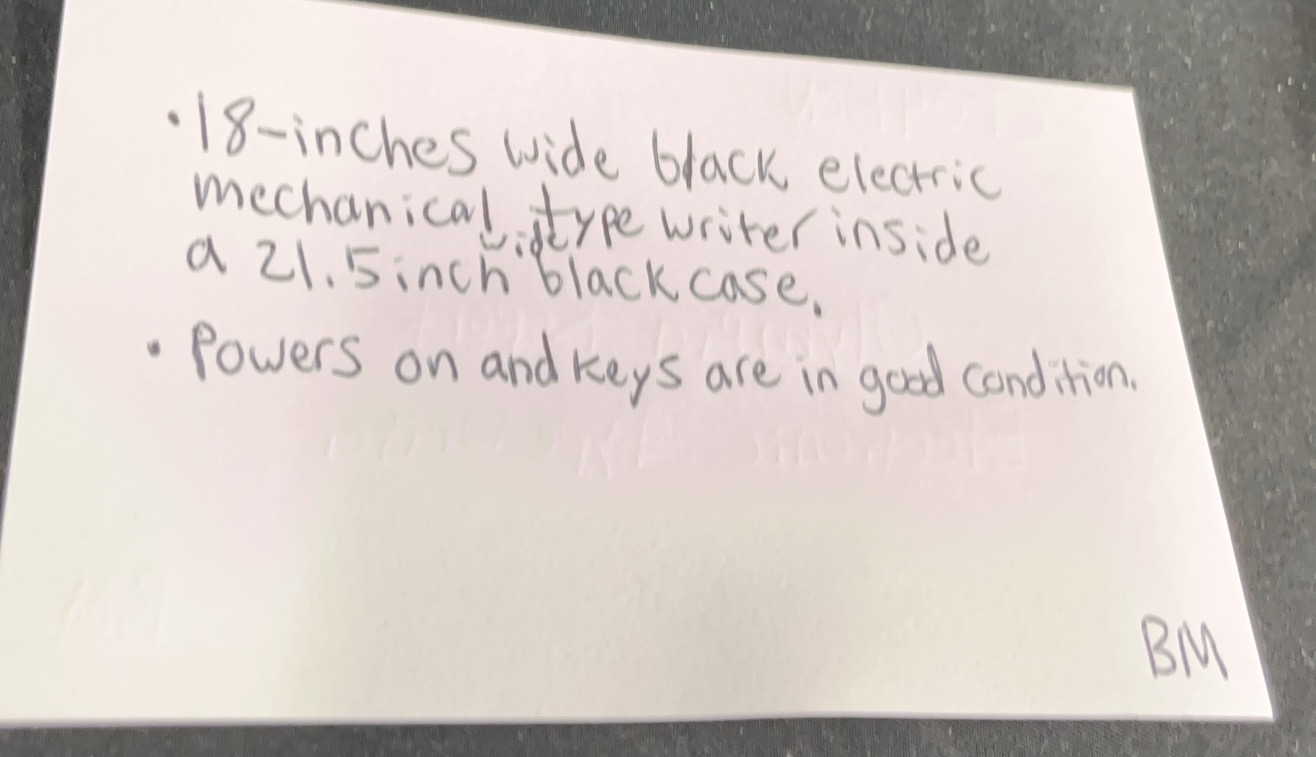 •18-inches wide black electric
mechanical type writer inside
a 21.5 inch wide black case.
• Powers on and keys are in good condition.
BM